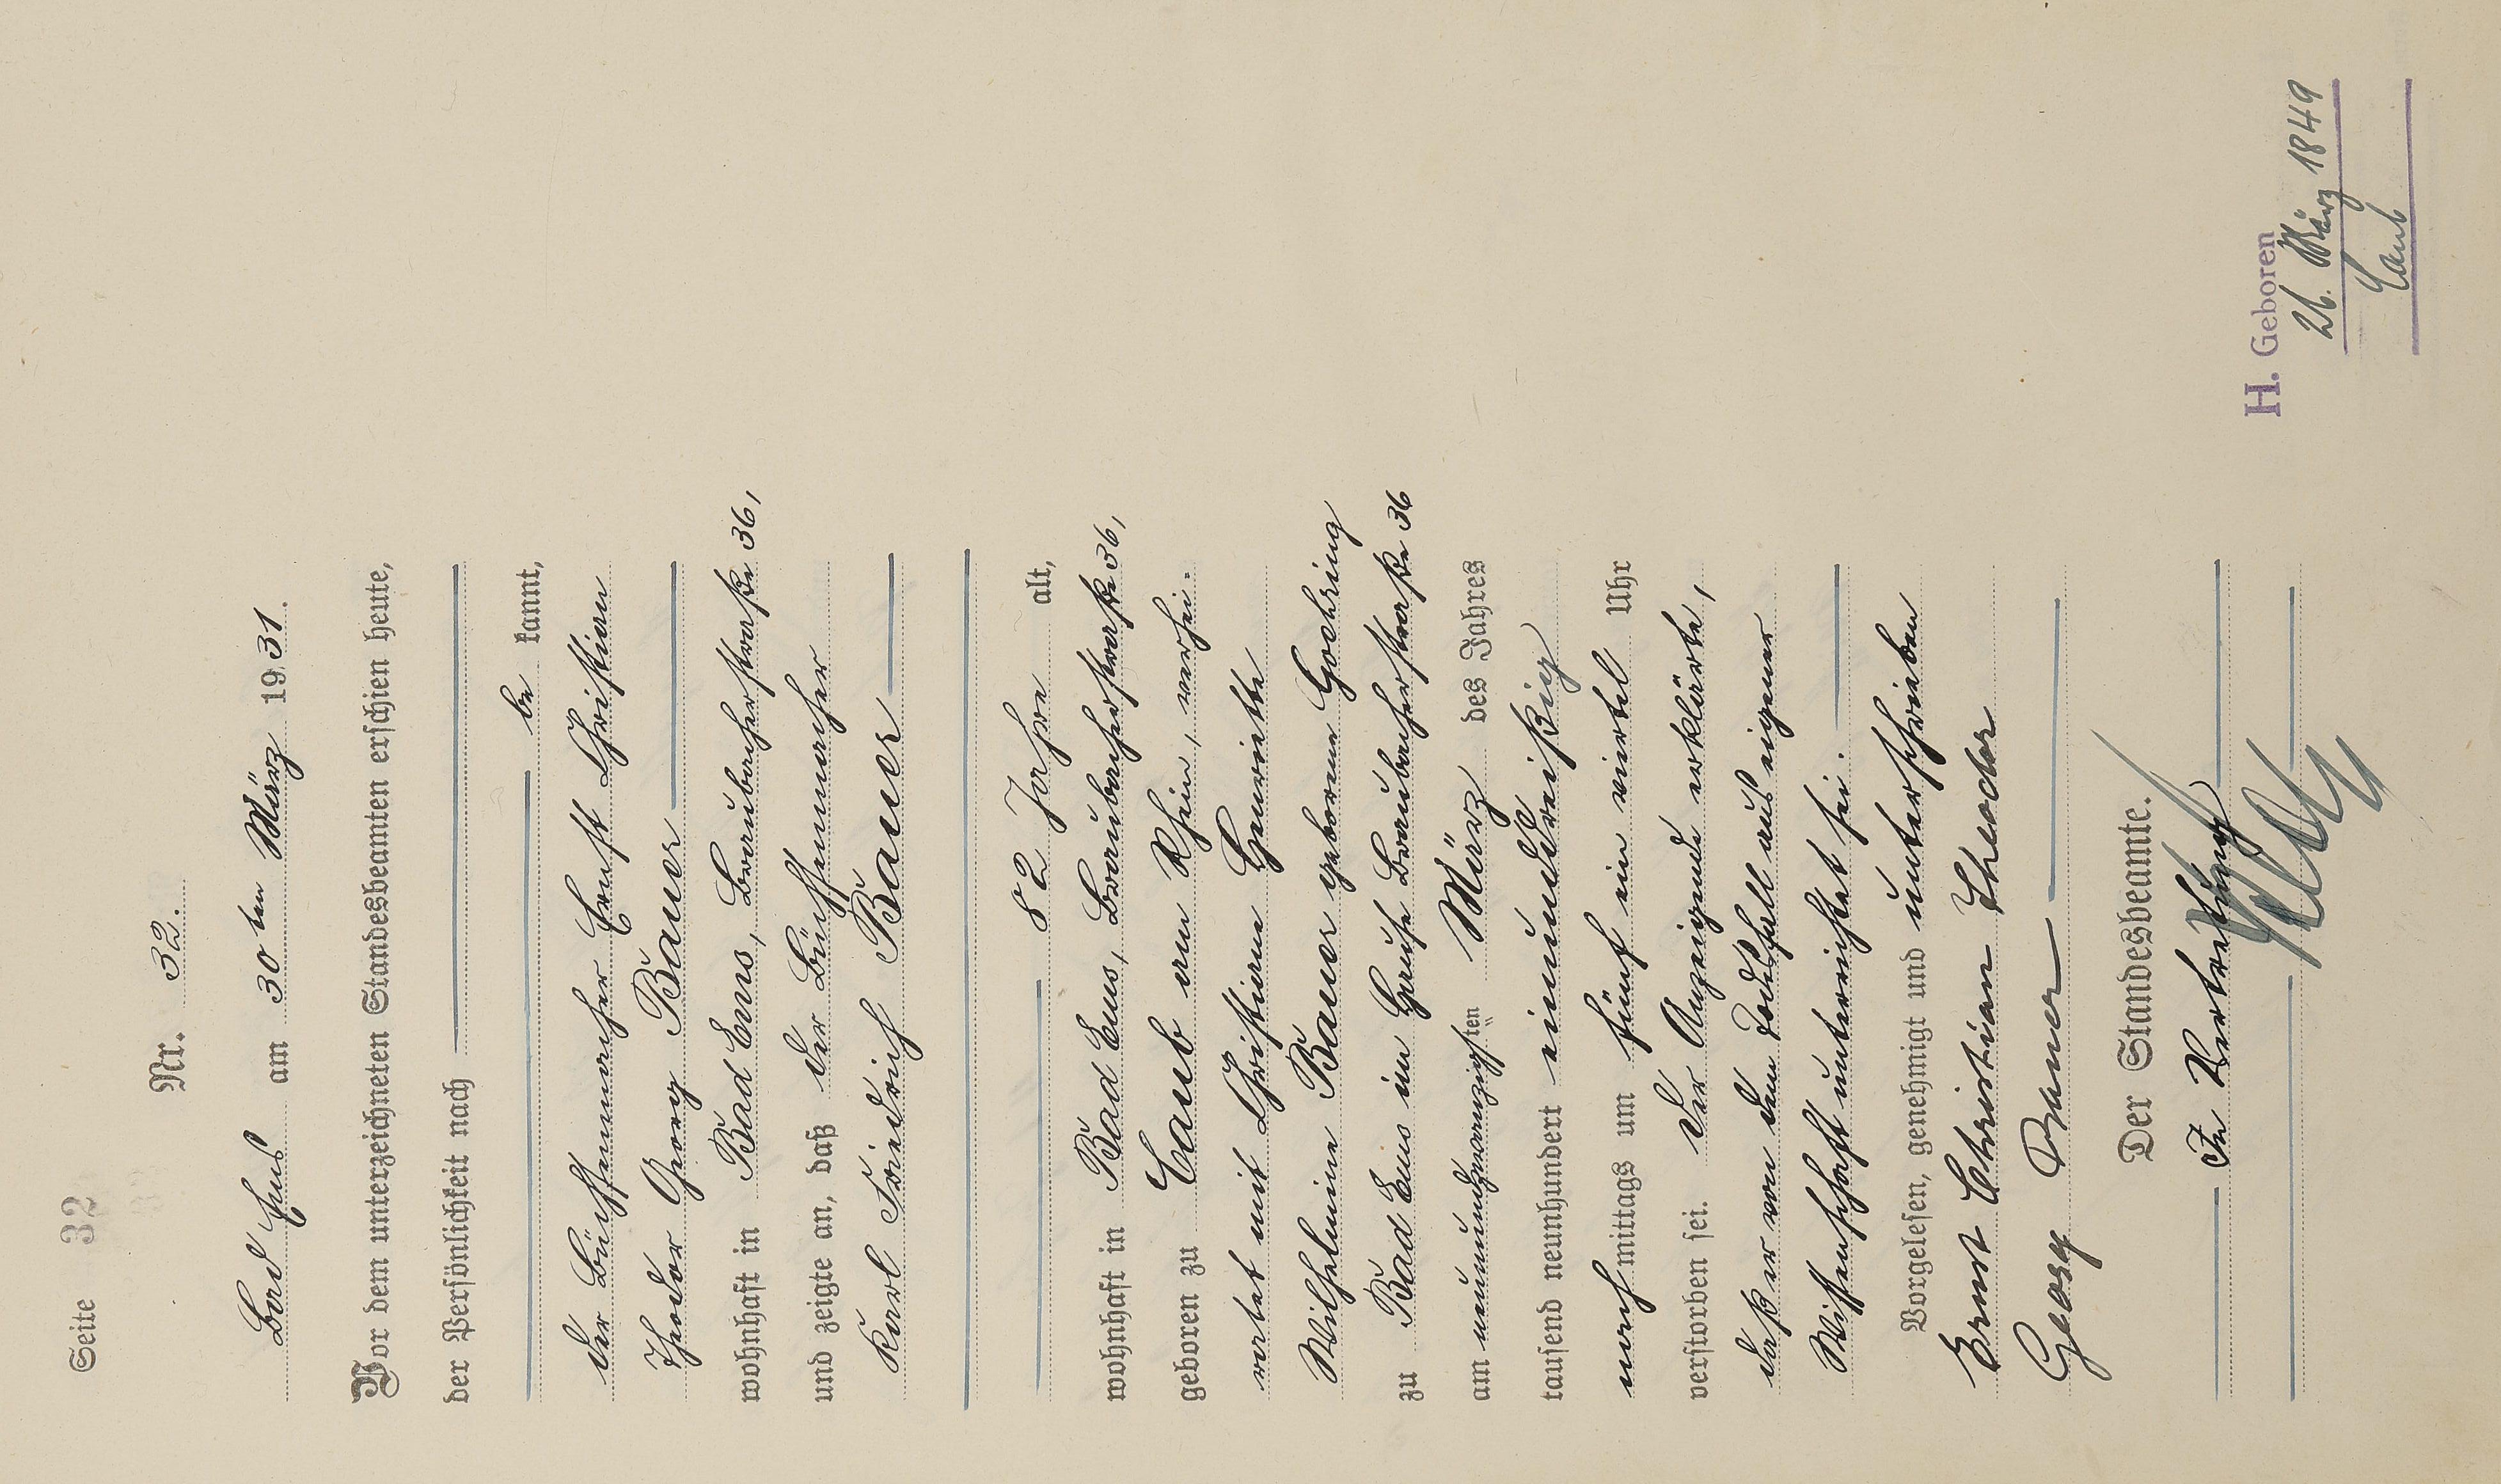 Seite 32
Nr. 32.
Bad Ems am 30ten März 1931.
Vor dem unterzeichneten Standesbeamten erschien heute,
der Persönlichkeit nach
be kannt,
der Büchsenmacher Ernst Christian
Theodor Georg Bauer
wohnhaft in Bad Ems, Braubacherstraße 36,
und zeigte an, daß der Büchsenmacher
Karl Friedrich Bauer
82 Jahre alt,
wohnhaft in Bad Ems, Braubacherstraße 36,
geboren zu Caub am Rhein, verhei-
ratet mit Christiane Henriette
Wilhelmine Bauer geborene Goehring
zu Bad Ems im Hause Braubacherstraße 36
am neunundzwanzigsten März des Jahres
tausend neunhundert einunddreißig
nachmittags um fünf ein viertel Uhr
verstorben sei. Der Anzeigende erklärte,
daß er von dem Todesfall aus eigener
Wissenschaft unterrichtet sei.
Vorgelesen, genehmigt und unterschrieben
Ernst Christian Theodor
Georg Bauer
Der Standesbeamte.
In Vertretung
H. Geboren
26. März 1849
Caub